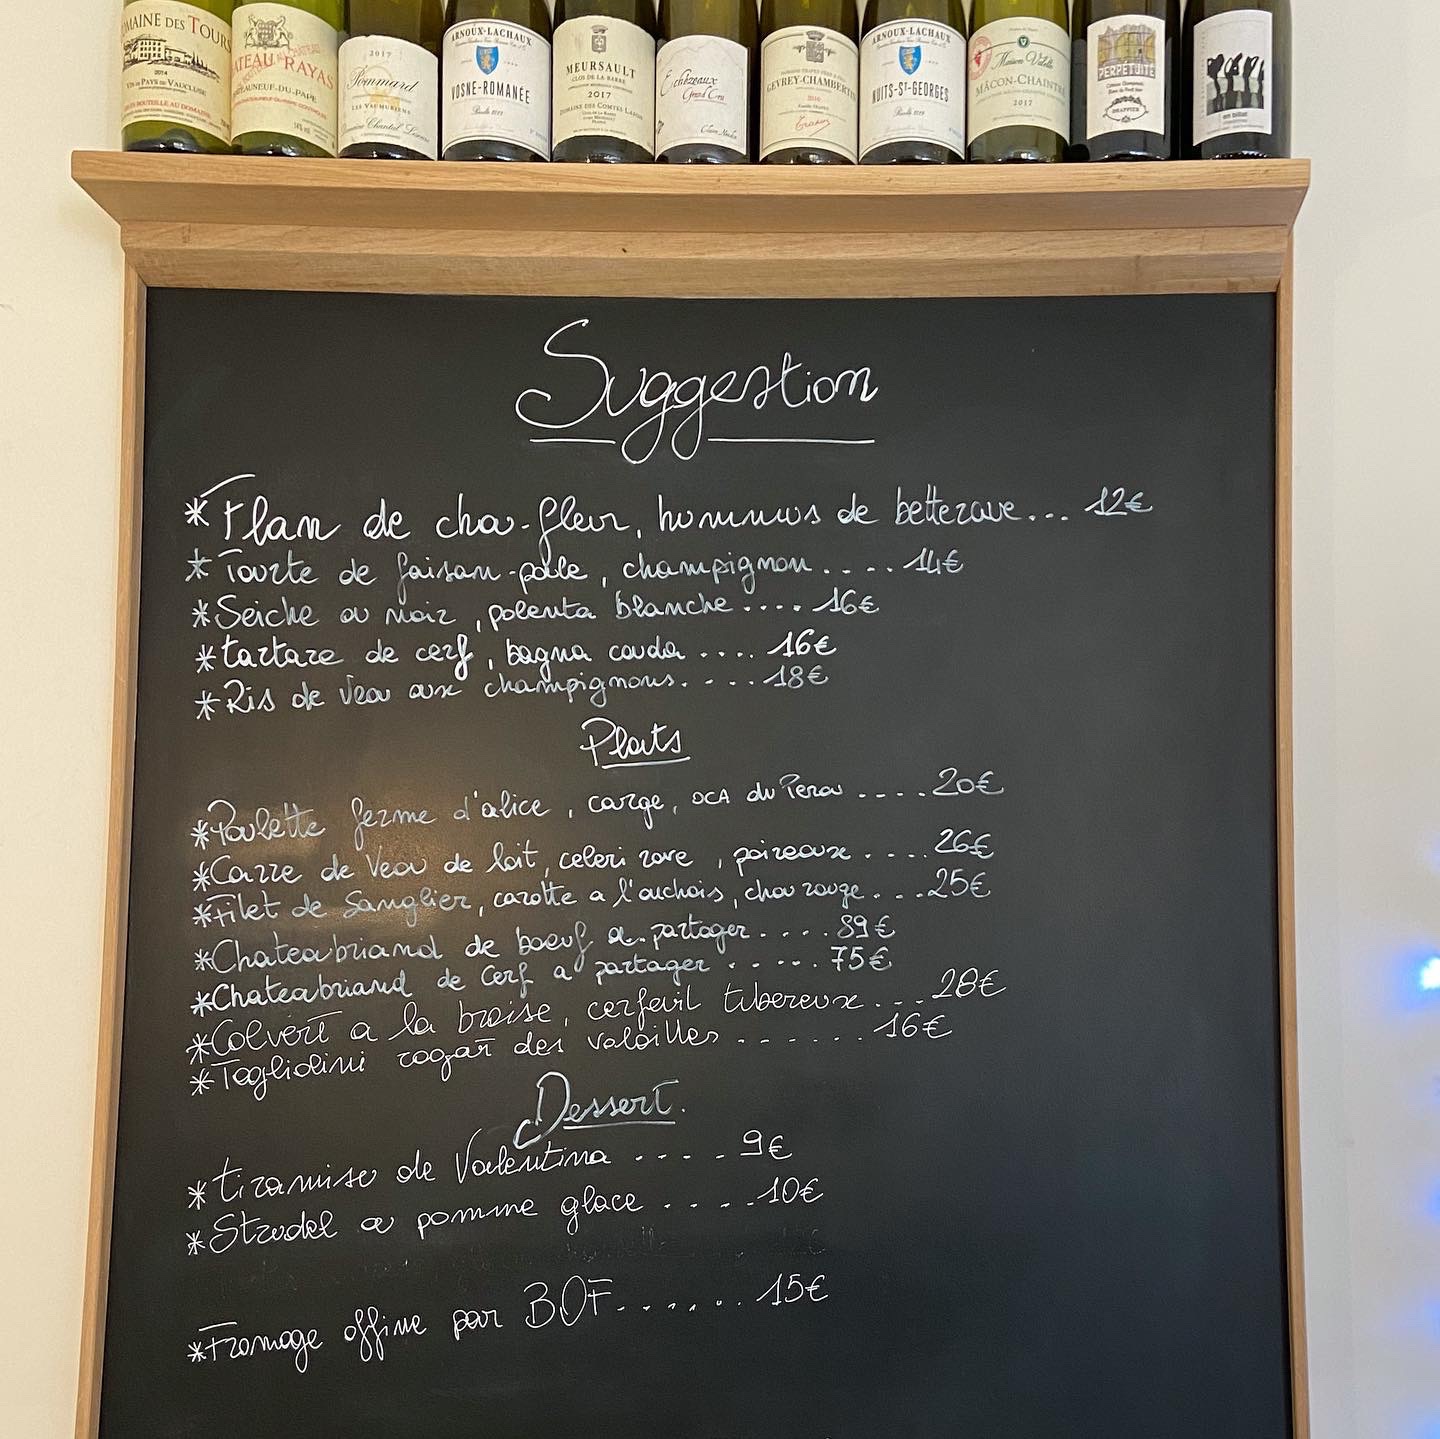 DOMAINE DES TOURS
2014
VIN de PAYS de VAUCLUSE
CHATEAU RAYAS
CHATEAUNEUF-DU-PAPE
2017
Pommard
LES VAUMURIENS
ARNOUX-LACHAUX
VOSNE-ROMANÉE
MEURSAULT
CLOS DE LA BARRE
2017
DOMAINE DES COMTES LAFON
Echézeaux
Grand Cru
GEVREY-CHAMBERTIN
ARNOUX-LACHAUX
NUITS-ST-GEORGES
Maison Valette
MÂCON-CHAINTRÉ
2017
PERPÉTUITÉ
DRAPPIER
en billat
Suggestion
*Flan de chou-fleur, hommus de betterave... 12€
*Tourte de faisan-poule, champignon.... 14€
*Seiche au noir, polenta blanche.... 16€
*tartare de cerf, bagna couda .... 16€
*Ris de Veau aux champignons..... 18€
Plats
*Poulette ferme d'alice, courge, OCA du Perou ....20€
*Carre de Veau de lait, celeri rave, poireaux ....26€
*Filet de Sanglier, carotte a l'anchois, chou rouge....25€
*Chateaubriand de boeuf a partager.....89€
*Chateaubriand de Cerf a partager .....75€
*Colvert a la braise, cerfeuil tubereux....28€
*Tagliolini ragat des volailles ......16€
Dessert.
*tiramisu de Valentina ....9€
*Strudel au pomme glace ....10€
*Fromage affine par BOF....... 15€